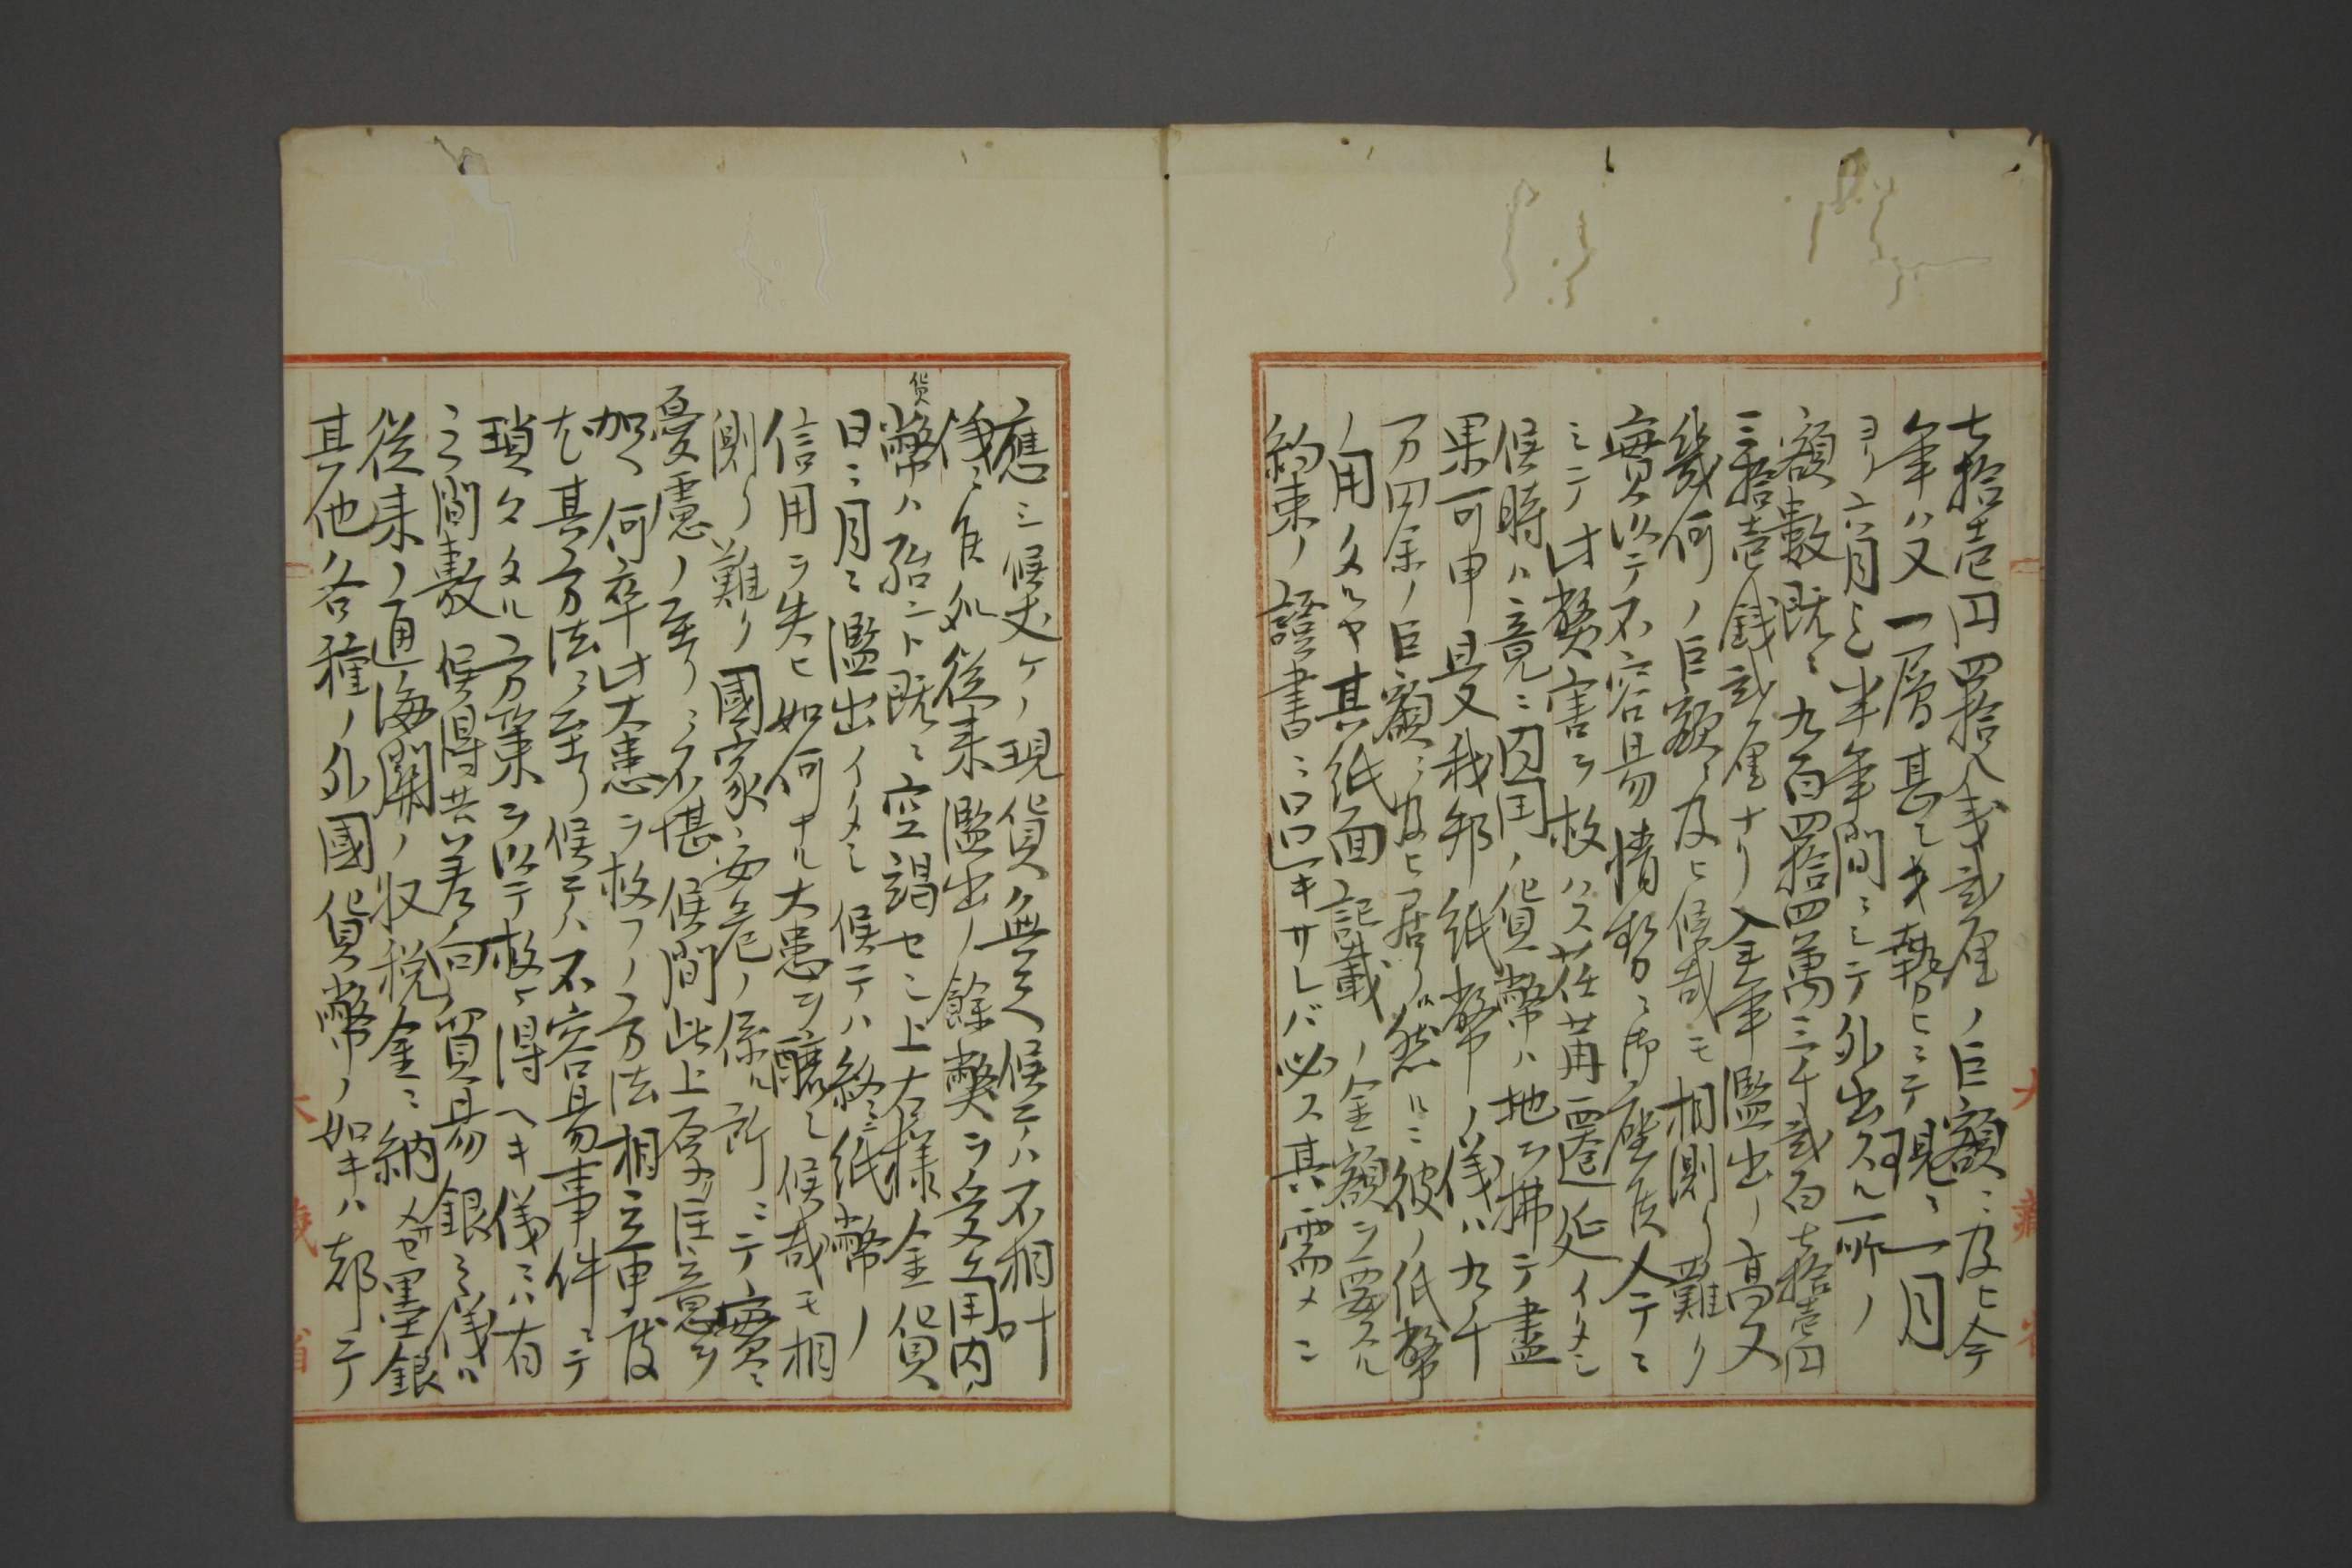 七拾壱円四拾八銭弐厘ノ巨額ニ及ヒ今
年ハ又一層甚シキ勢ヒニテ現ニ一月
ヨリ六月迄半年間ニシテ外出スル所ノ
額數既ニ九百四拾四萬三千弐百七拾壱円
三拾壱銭弐厘ナリ全年濫出ノ高又
幾何ノ巨額ニ及ヒ候哉モ相測リ難ク
實以テ不容易情勢ニ御座候今ニ
シテ此弊害ヲ救ハス荏苒遷延イタシ
候時ハ竟ニ国ノ貨幣ハ地ヲ拂テ盡
果可申且又我邦紙幣ノ儀ハ九千
万円余ノ巨額ニ及ヒ居リ然ルニ彼ノ紙幣
ノ用タルヤ其紙面記載ノ金額ヲ要スル
約束ノ證書ニ シキサレバ必ス其需メニ
應シ候丈ケノ現貨無之候テハ不相叶
儀ニ候処従来濫出ノ餘弊ヲ受ケ国内ノ
貨幣ハ殆ント既ニ空竭セシ上右様金貨
日ニ月ニ濫出イタシ候テハ終ニ紙幣ノ
信用ヲ失ヒ如何ナル大患ヲ醸シ候哉モ相
測リ難ク國家ノ安危ノ係ル所ニテ實ニ
憂慮ノ至リニ不堪候間此上厚ク注意ヲ
加ヘ何卒此大患ヲ救フノ方法相立申度
尤其方法ニ至リ候テハ不容易事件ニテ
瑣々タル方策ヲ以テ救ヒ得ヘキ儀ニハ有
之間敷候得共差向貿易銀之儀ハ
従来ノ通海關ノ収税金ニ納メサセ墨銀
其他各種ノ外國貨幣ノ如キハ都テ
大藏省